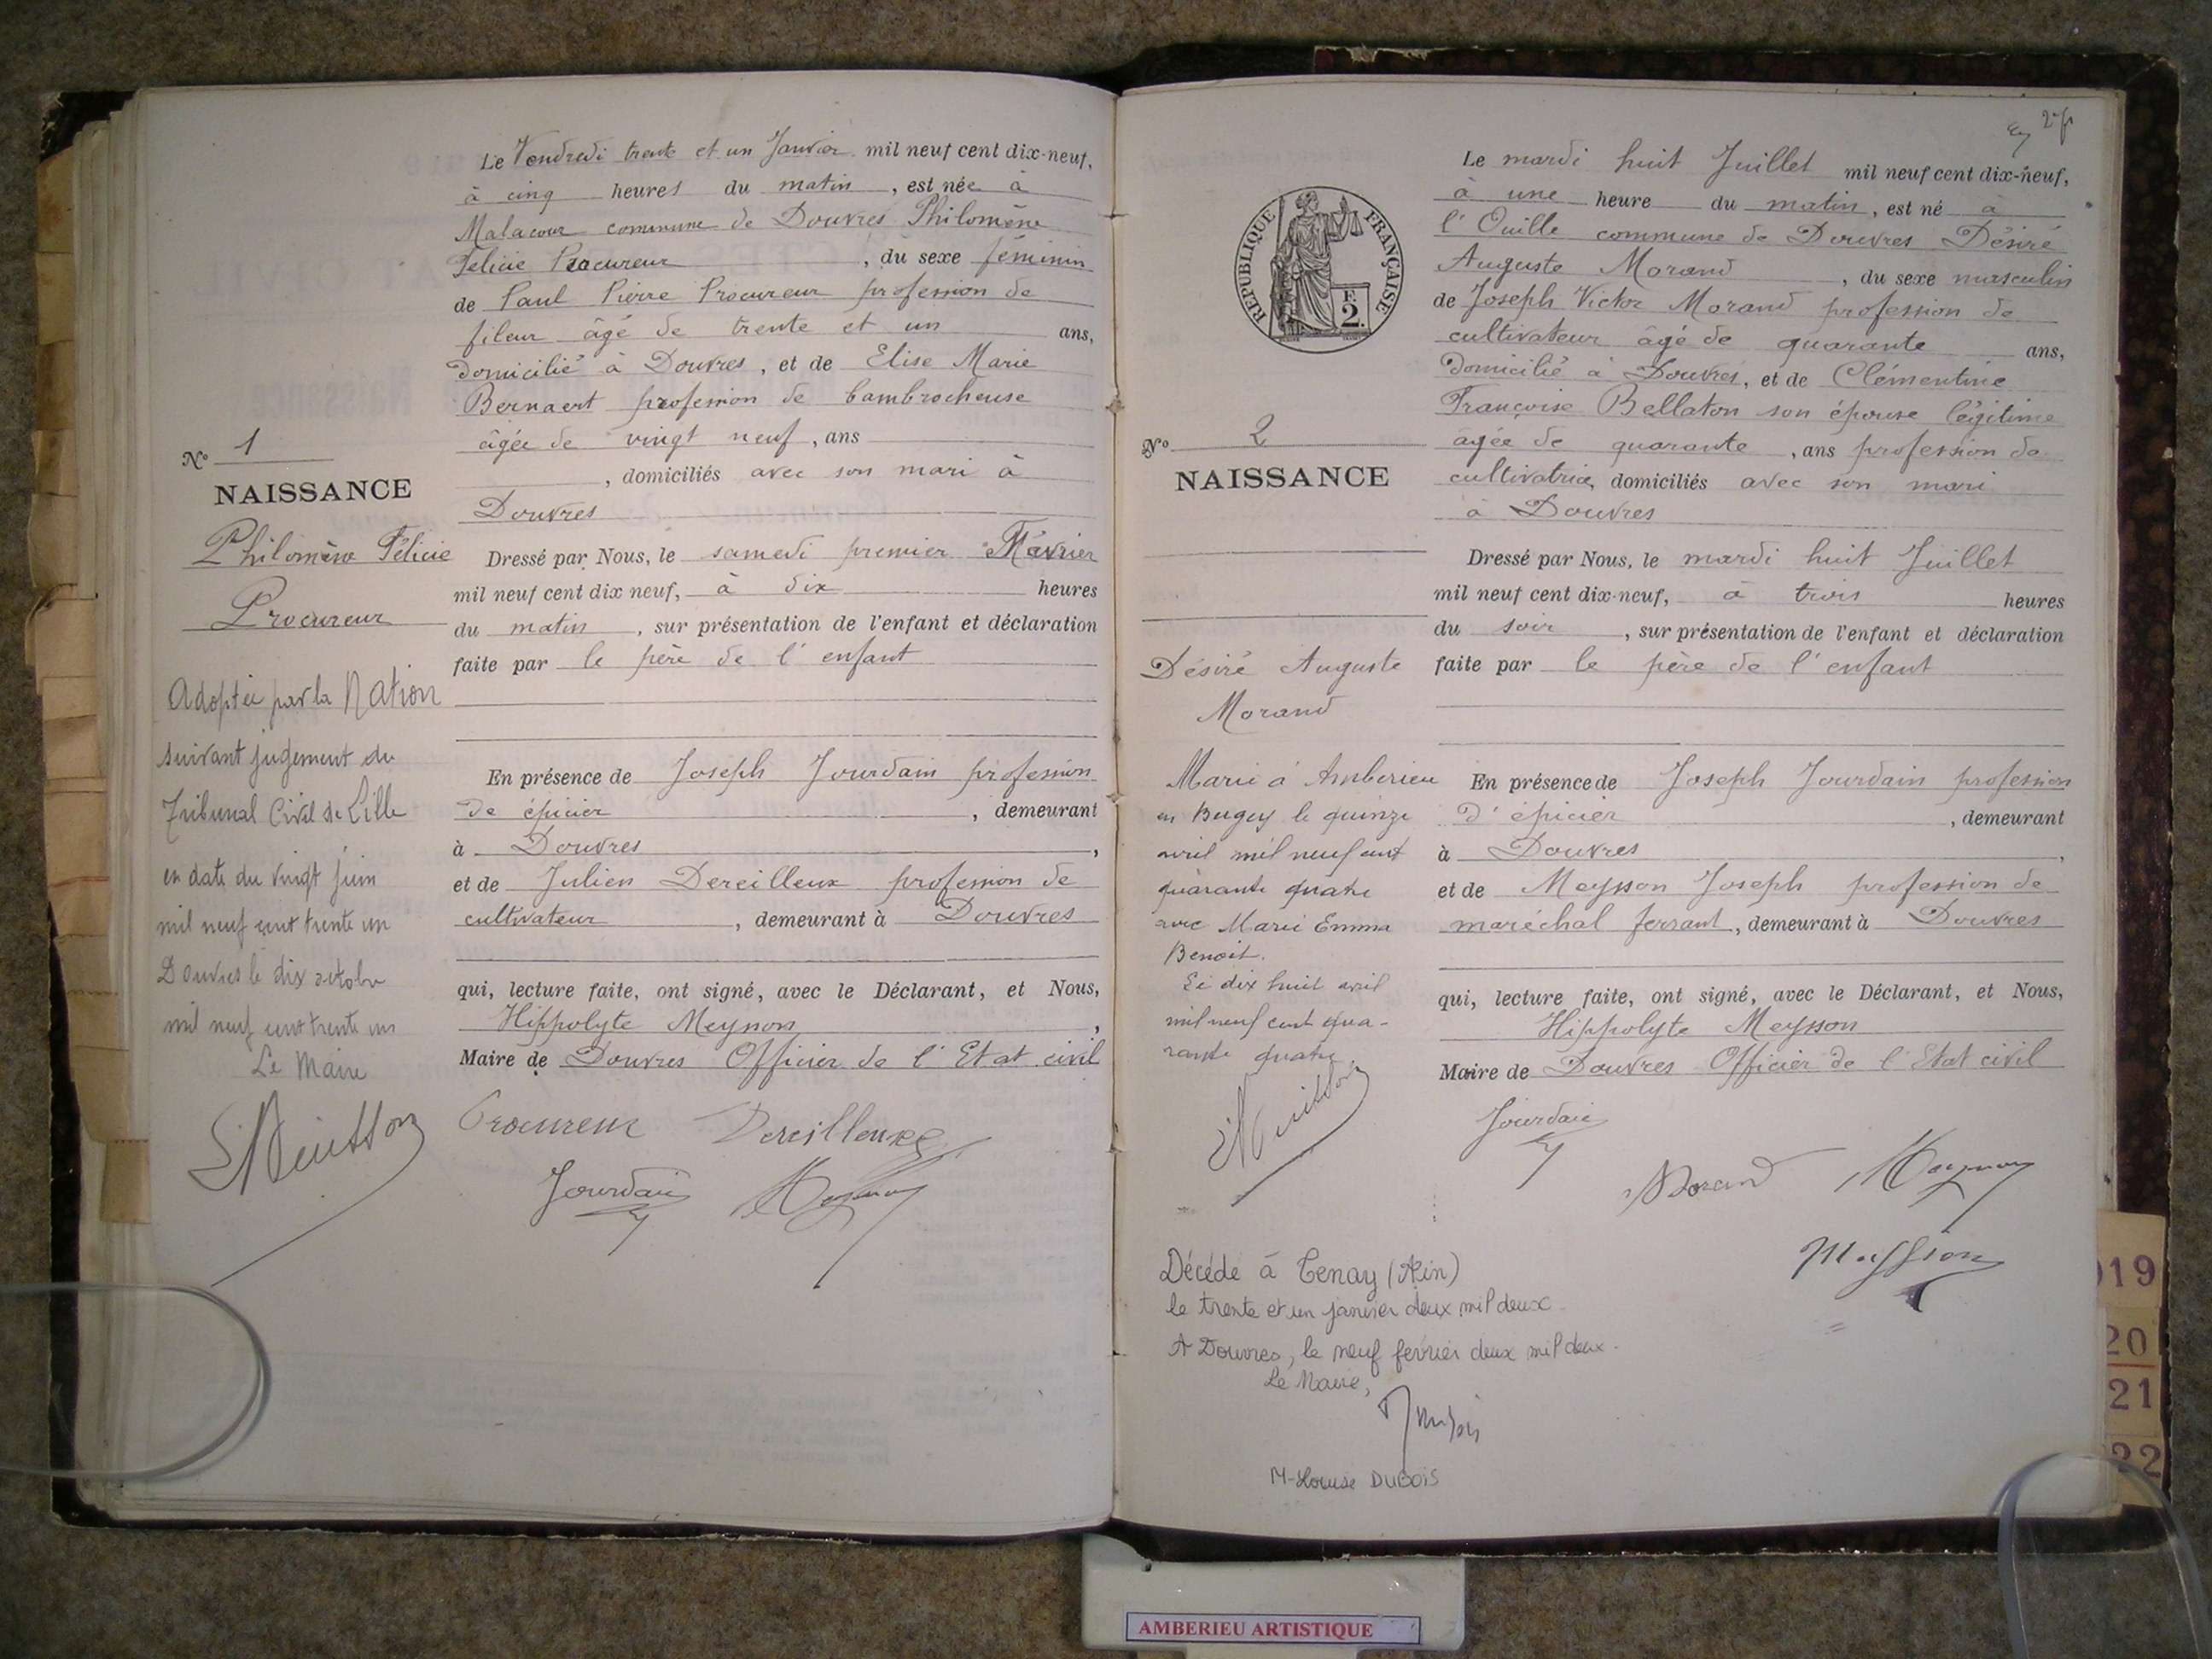 Le Vendredi trente et un Janvier mil neuf cent dix-neuf,
à cinq heures du matin, est née à
Malacour commune de Douvres Philomène
Félicie Procureur, du sexe féminin
de Paul Pierre Procureur profession de
fileur âgé de trente et un ans,
domicilié à Douvres, et de Elise Marie
Bernaert profession de bambrocheuse
âgée de vingt neuf, ans
, domiciliés avec son mari à
Douvres
Dressé par Nous, le samedi premier Février
mil neuf cent dix neuf, à dix heures
du matin, sur présentation de l'enfant et déclaration
faite par le père de l'enfant
En présence de Joseph Jourdain profession
de épicier, demeurant
à Douvres,
et de Julien Dereilleux profession de
cultivateur, demeurant à Douvres
qui, lecture faite, ont signé, avec le Déclarant, et Nous,
Hippolyte Meynon,
Maire de Douvres Officier de l'Etat civil
Procureur Dereilleux
Jourdain Meynon
N° 1
NAISSANCE
Philomène Félicie
Procureur
Adoptée par la Nation
suivant jugement du
Tribunal Civil de Lille
en date du vingt juin
mil neuf cent trente un
Douvres le dix octobre
mil neuf cent trente un
Le Maire
2
Le mardi huit Juillet mil neuf cent dix-neuf,
à une heure du matin, est né à
l'Ouille commune de Douvres Désiré
Auguste Morand, du sexe masculin
de Joseph Victor Morand profession de
cultivateur âgé de quarante ans,
domicilié à Douvres, et de Clémentine
Françoise Bellaton son épouse légitime
âgée de quarante, ans profession de
cultivatrice, domiciliés avec son mari
à Douvres
Dressé par Nous, le mardi huit Juillet
mil neuf cent dix-neuf, à trois heures
du soir, sur présentation de l'enfant et déclaration
faite par le père de l'enfant
En présence de Joseph Jourdain profession
d'épicier, demeurant
à Douvres,
et de Meysson Joseph profession de
maréchal ferrant, demeurant à Douvres
qui, lecture faite, ont signé, avec le Déclarant, et Nous,
Hippolyte Meysson
Maire de Douvres Officier de l'Etat civil
Jourdain
Morand Meynon
Meysson
REPUBLIQUE FRANÇAISE
2
N° 2
NAISSANCE
Désiré Auguste
Morand
Marié à Amberieu
en Bugey le quinze
avril mil neuf cent
quarante quatre
avec Marie Emma
Benoit.
Le dix huit avril
mil neuf cent qua-
rante quatre.
Décédé à Tenay (Ain)
le trente et un janvier deux mil deux
A Douvres, le neuf février deux mil deux.
Le Maire,
M-Louise DUBOIS
19
20
21
22
AMBERIEU ARTISTIQUE